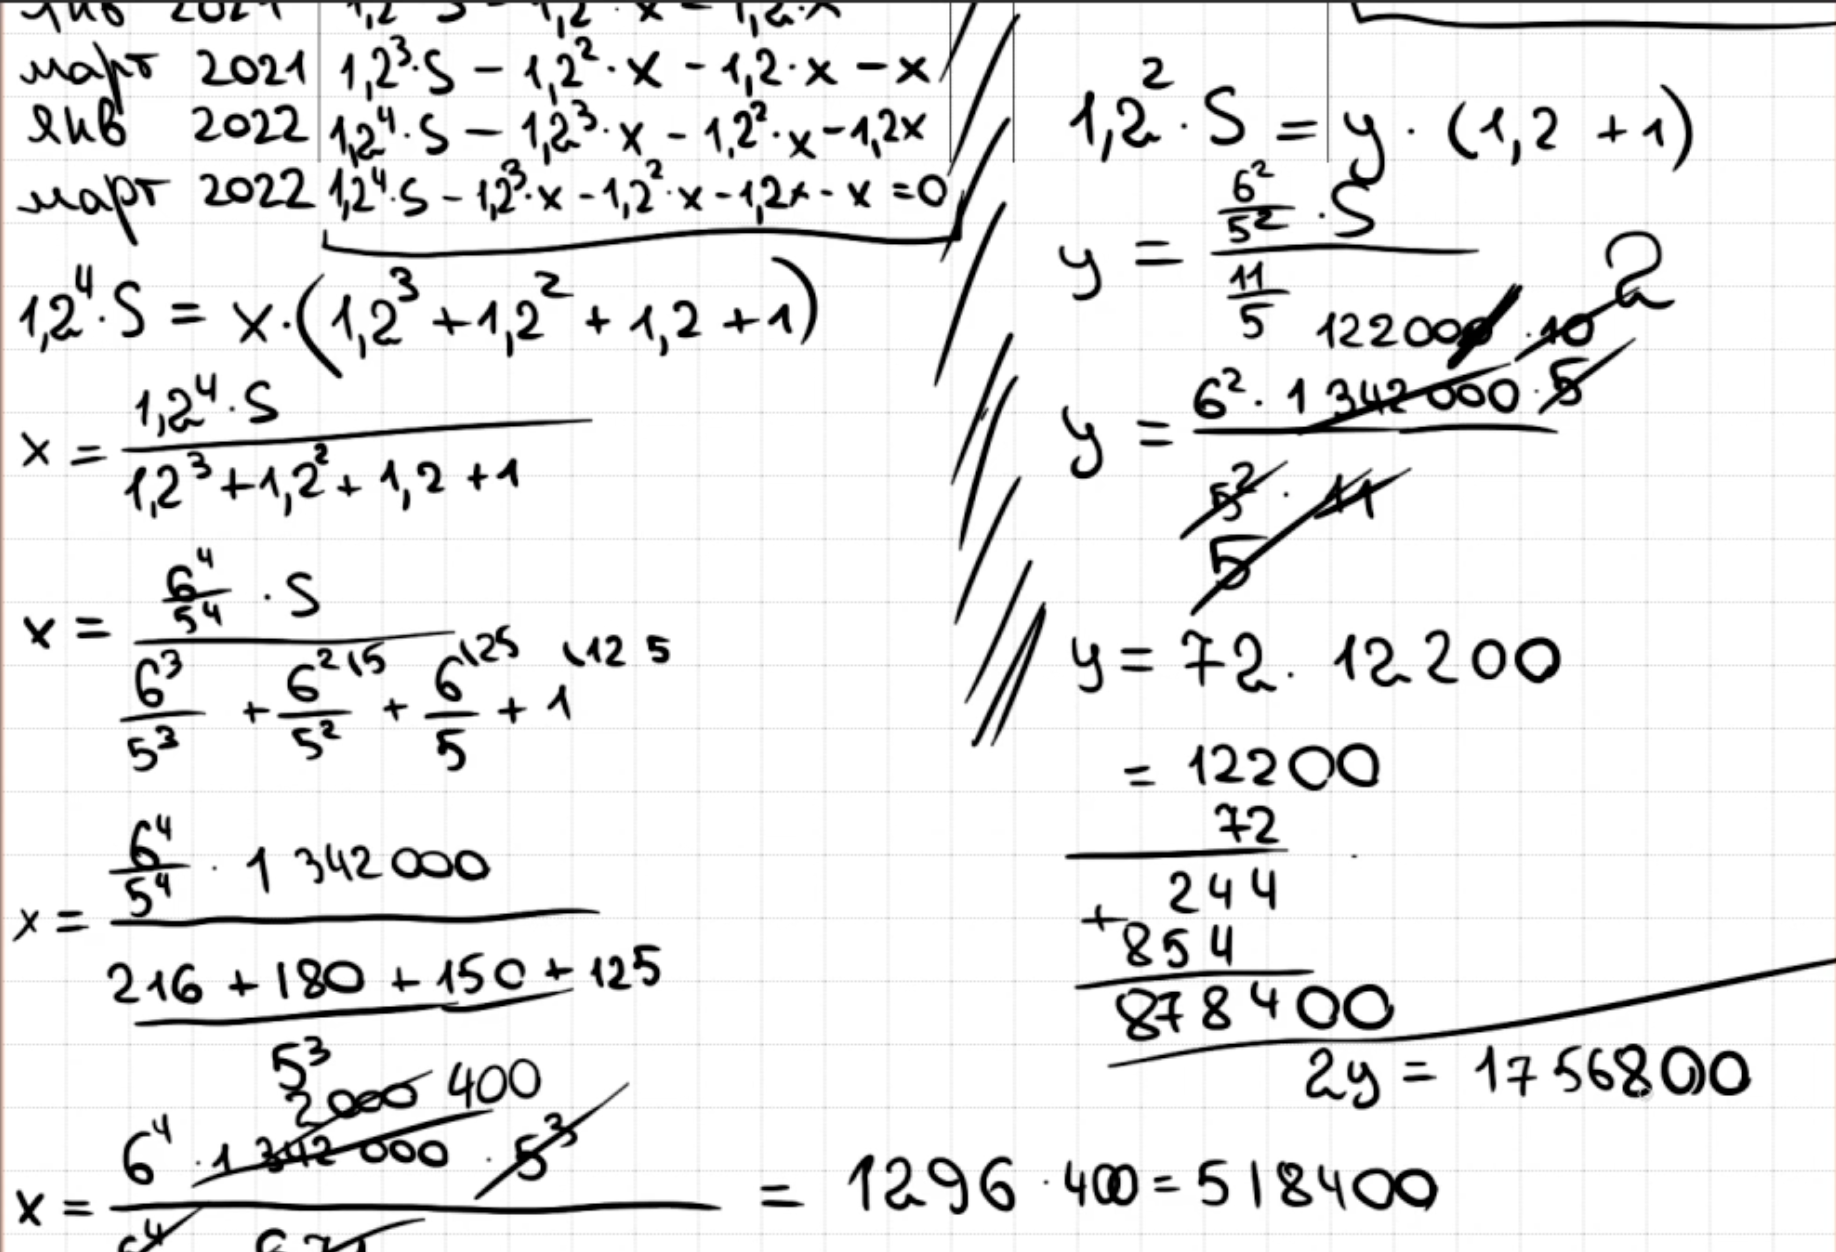 янв 2021 1,2³·S − 1,2²·x − 1,2·x
март 2021 1,2³·S − 1,2²·x − 1,2·x − x
янв 2022 1,2⁴·S − 1,2³·x − 1,2²·x − 1,2x
март 2022 1,2⁴·S − 1,2³·x − 1,2²·x − 1,2x − x = 0
1,2⁴·S = x·(1,2³ + 1,2² + 1,2 + 1)
x = 1,2⁴·S / 1,2³ + 1,2² + 1,2 + 1
x = 6⁴/5⁴ · S / 6³/5³ + 6²/5² \5 + 6/5 \25 + 1 \125
x = 6⁴/5⁴ · 1 342 000 / 216 + 180 + 150 + 125 / 5³
2000 400
x = 6⁴ · 1 342 000 · 5³ / 5⁴ 671 = 1296 · 400 = 518400
1,2² · S = y · (1,2 + 1)
y = 6²/5² · S / 11/5
122000 · 10 2
y = 6² · 1 342 000 · 5 / 5² · 11
5
y = 72 · 12200
= 12200
72
244
+ 854
878400
2y = 1756800